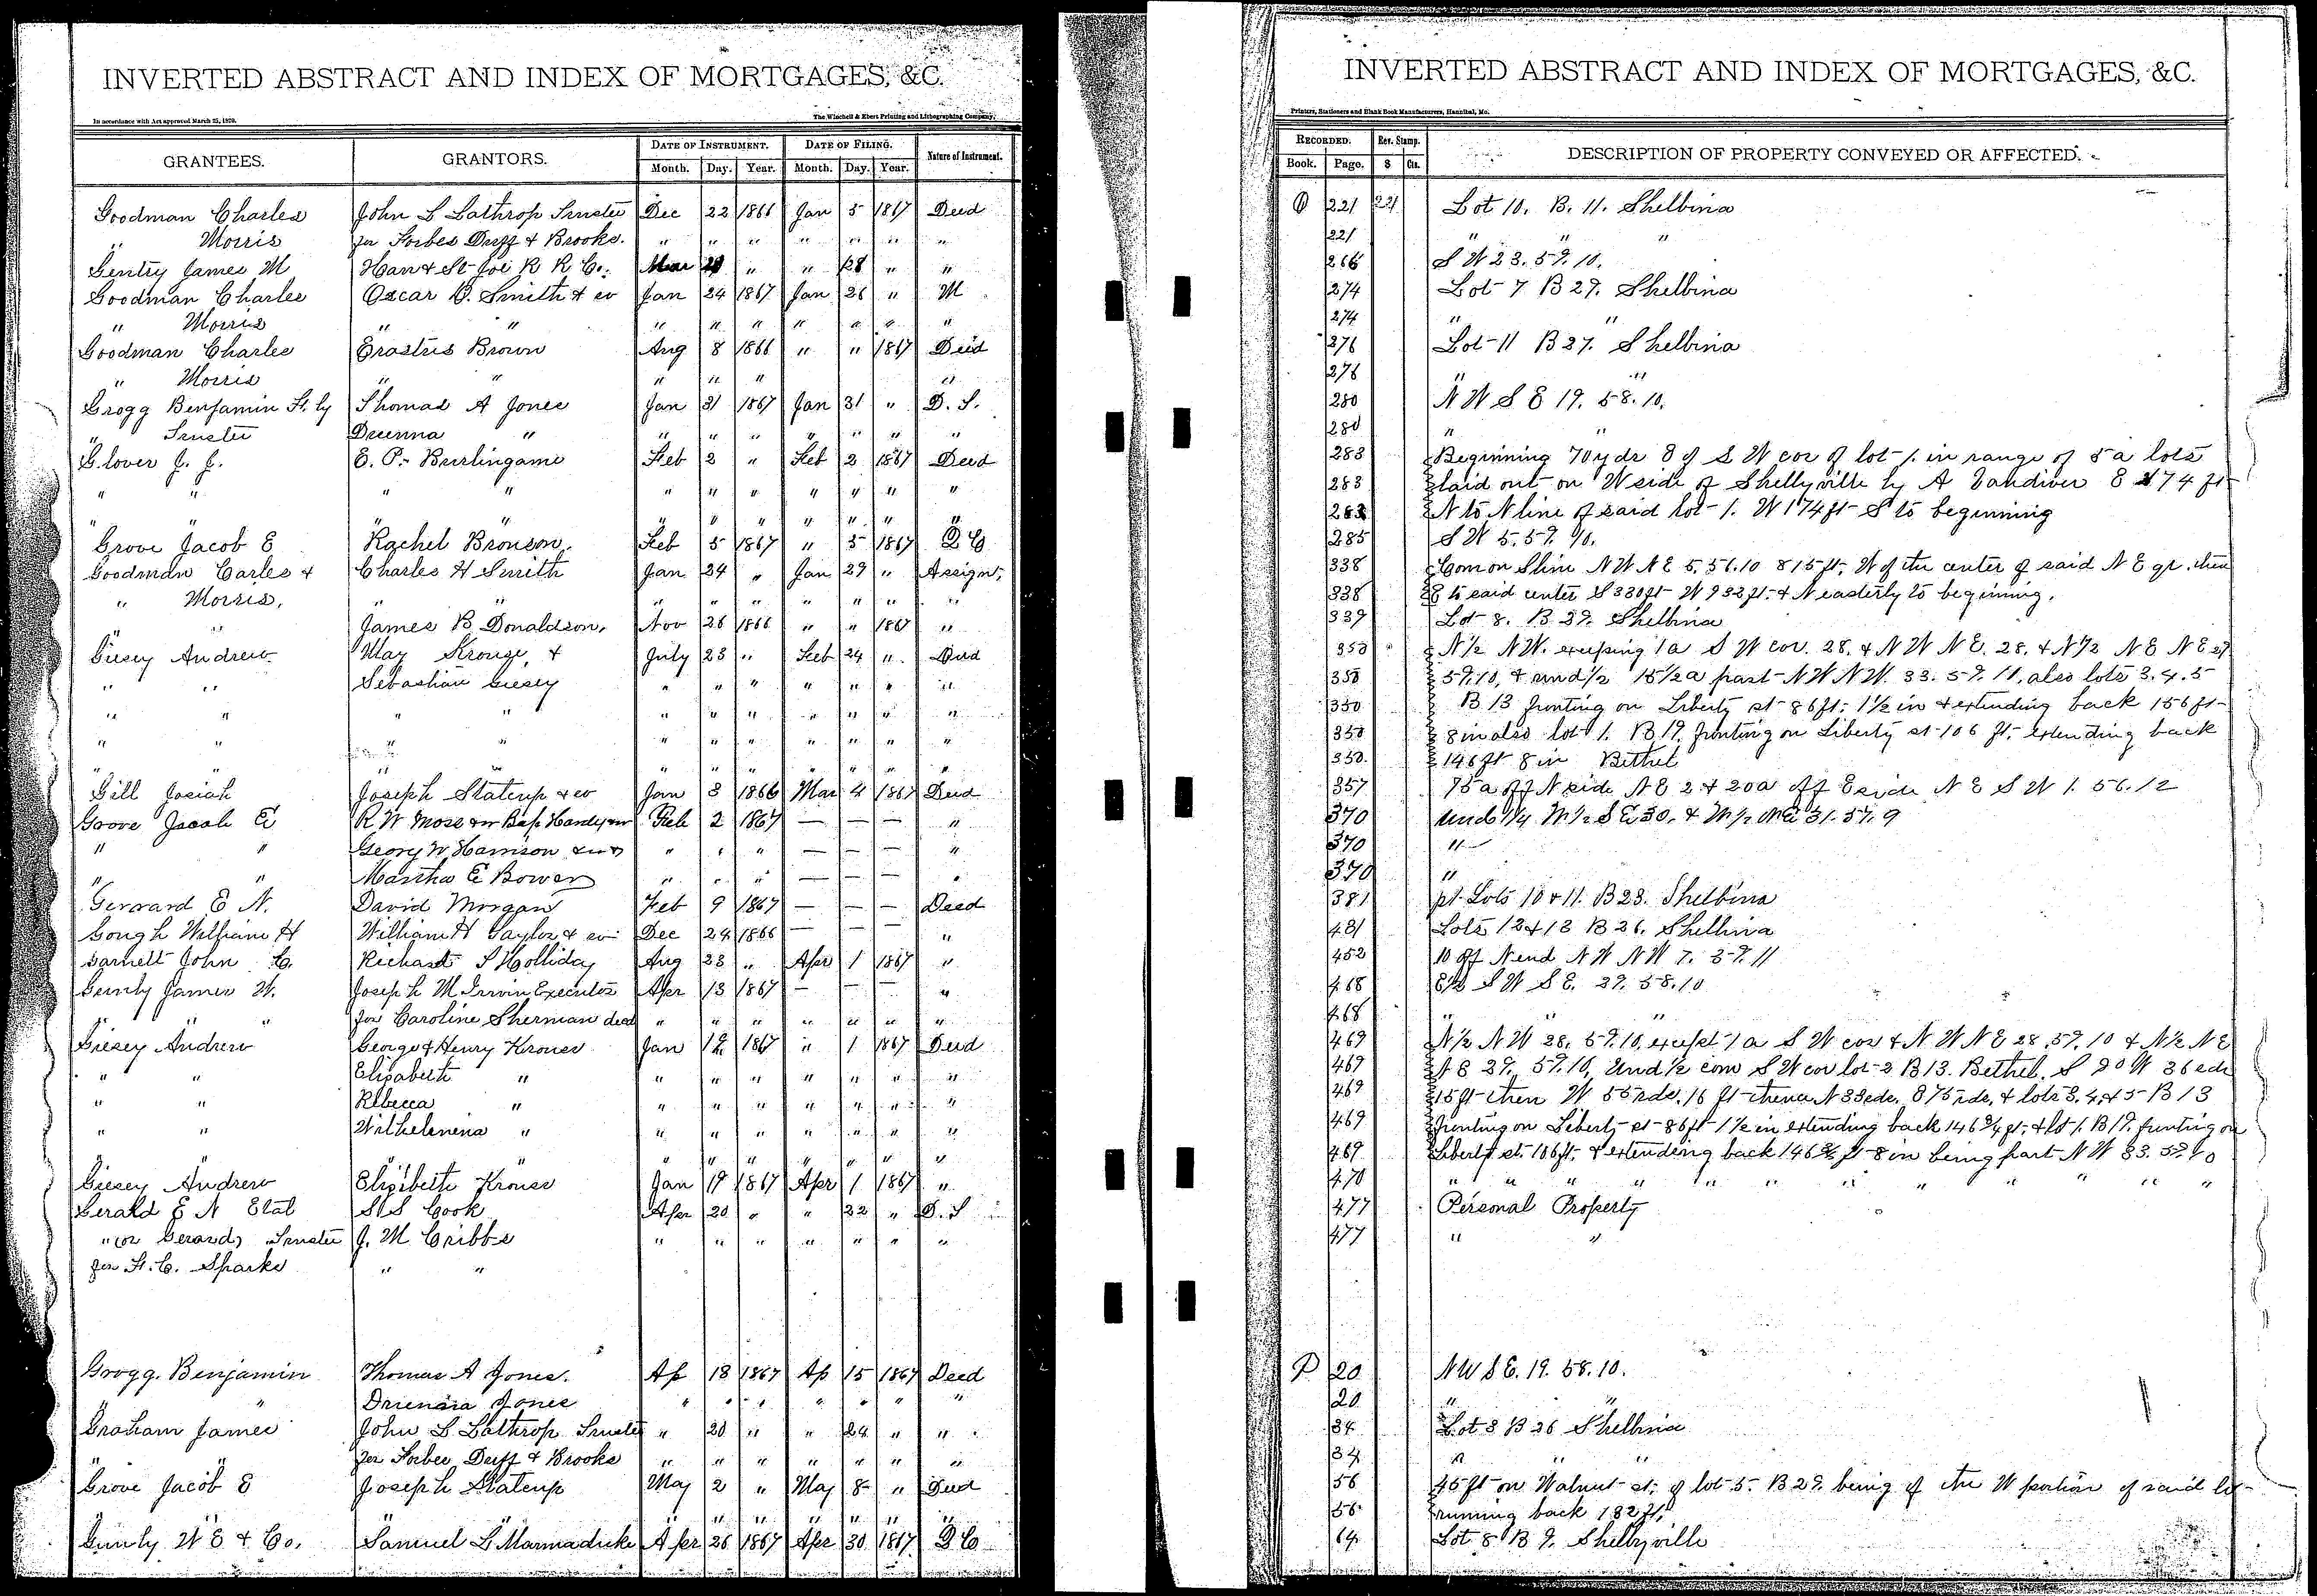 INVERTED ABSTRACT AND INDEX OF MORTGAGES, &C.
In accordance with Act approved March 25, 1870. The Winchell & Ebert Printing and Lithographing Company,
GRANTEES. GRANTORS. DATE OF INSTRUMENT. DATE OF FILING. Nature of Instrument.
Month. Day. Year. Month. Day. Year.
Goodman Charles John L Lathrop Trustee Dec 22 1866 Jan 5 1867 Deed
" Morris for Forbes Duff & Brooks. " " " " " " "
Gentry James M Han & St Joe R R Co. Mar " " 28 " "
Goodman Charles Oscar O. Smith & w Jan 24 1867 Jan 26 " M
" Morris " " " " " " " " "
Goodman Charles Erastus Brown Aug 8 1866 " " 1867 Deed
" Morris " " " " " "
Grogg Benjamin F. by Thomas A Jones Jan 31 1867 Jan 31 " D. T.
" Trustee Drenna " " " " " " " "
Glover J. J. E. P. Burlingame Feb 2 " Feb 2 1867 Deed
" " " " " " " " " " "
" " " " " " " " " " "
Grove Jacob E Rachel Bronson. Feb 5 1867 " 5 1867 Q C
Goodman Carles & Charles H Smith Jan 24 " Jan 29 " Assignt,
" Morris, " " " " " " " " "
" " James B Donaldson, Nov 26 1866 " " 1867 "
Giesey Andrew May Krouse, & July 23 " Feb 24 " Deed
" " Sebastian Giesey " " " " " " "
" " " " " " " " " " "
" " " " " " " " " " "
" " " " " " " " " "
Gill Josiah Joseph Staterup & w Jan 3 1866 Mar 4 1867 Deed
Groove Jacob E R. W Moss & w Bap. Handy & w Feb 2 1867 — — — "
" " Georg W Harrison & w " " " — — — "
" " Martha E Bower " " " — — — "
Gerrard E N. David Morgan Feb 9 1867 — — — Deed
Gough William H William H Taylor & w Dec 24 1866 — — — "
Garnett John C. Richard S Holliday Aug 23 " Apr 1 1867 "
Gunly James W. Joseph M Irwin Executor Apr 13 1867 — — — "
" " for Caroline Sherman decd " " " " " " "
Giesey Andrew George & Henry Krouse Jan 12 1867 " 1 1867 Deed
" " Elizabeth " " " " " " " "
" " Rebecca " " " " " " " "
" " Wilhelmena " " " " " " " "
" " " " " " " " " "
Giesey Andrew Elizibeth Krouse Jan 19 1867 Apr 1 1867 "
Gerald E N Etal S S Cook Apr 20 " " 22 " D. T
" (or Gerard) Trustee J. M. Cribbs " " " " " " "
for F. C. Sparks " "
Grogg. Benjamin Thomas A Jones. Ap 18 1867 Ap 15 1867 Deed
" " Jones " " " " " " "
Graham James John L Lathrop Trustee " 20 " " 24 " "
" " for Forbes Duff & Brooks " " " " " " "
Grove Jacob E Joseph Staterup May 2 " May 8 " Deed
" " " " " " "
Gunly W E & Co. Samuel L Marmaduke Apr 26 1867 Apr 30 1867 Q C
INVERTED ABSTRACT AND INDEX OF MORTGAGES, &C.
Printers, Stationers and Blank Book Manufacturers, Hannibal, Mo.
RECORDED. Rev. Stamp. DESCRIPTION OF PROPERTY CONVEYED OR AFFECTED.
Book. Page. $ Cts.
O 221 221 Lot 10. B. 11. Shelbina
221 " " "
266 S W 23. 57. 10.
274 Lot 7 B 27. Shelbina
274 " "
276 Lot 11 B 27. Shelbina
276 " "
280 N W S E 19. 58. 10.
280 " "
283 Beginning 70 yds E of S W cor of lot 1. in range of 5 a lots
283 laid out on W side of Shelbyville by A Vandiver E 174 ft
283 N to N line of said lot 1. W 174 ft S to beginning
285 S W 5. 57. 10.
338 Com on S line N W N E 5. 56. 10 815 ft. W of the center of said N E qr. then
338 E to said center S 330 ft W 932 ft. & N easterly to beginning.
339 Lot 8. B 27. Shelbina
350 N ½ N W. exceping 1 a S W cor. 28. & N W N E. 28. & N ½ N E N E 29
350 57. 10, & und ½ 15 ½ a part N W N W. 33. 57. 10, also lots 3. 4. 5
350 B 13 fronting on Liberty st 86 ft. 1 ½ in & extending back 156 ft
350 8 in also lot 1. B 19. fronting on Liberty st 106 ft. extending back
350. 146 ft 8 in Bethel
357 75 a off N side N E 2 & 20 a off E side N E S W 1. 56. 12
370 und ¼ W ½ S E 30. & W ½ N E 31. 57. 9
370 "
370 "
381 pt. Lots 10 & 11. B 23. Shelbina
431 Lots 12 & 13 B 26. Shelbina
452 10 off N end N W N W 7. 57. 11
468 E ½ S W S E. 27. 58. 10
468 " "
469 N ½ N W 28. 57. 10, except 1 a S W cor & N W N E 28. 57. 10 & N ½ N E
469 N E 29. 57. 10, Und ½ com S W cor lot 2 B 13. Bethel. S 20 W 36 rds
469 15 ft then W 55 rds. 16 ft thence N 33 rds. E 75 rds. & lots 3. 4 & 5 B 13
469 fronting on Liberty st 86 ft 1 ½ in extending back 146 ¾ ft. & lot 1. B 19. funting on
469 Liberty st. 106 ft. & extending back 146 ¾ ft 8 in being part N W 33. 57. 10
470 " " " " " " " " " " " "
477 Personal Property
477 " "
P 20 N W S E. 19. 58. 10.
20 " "
34 Lot 3 B 26 Shelbina
34 " "
56 45 ft on Walnut st. of lot 5. B 27. being of the W portion of said lot
56 running back 132 ft.
64 Lot 8 B 9. Shelbyville